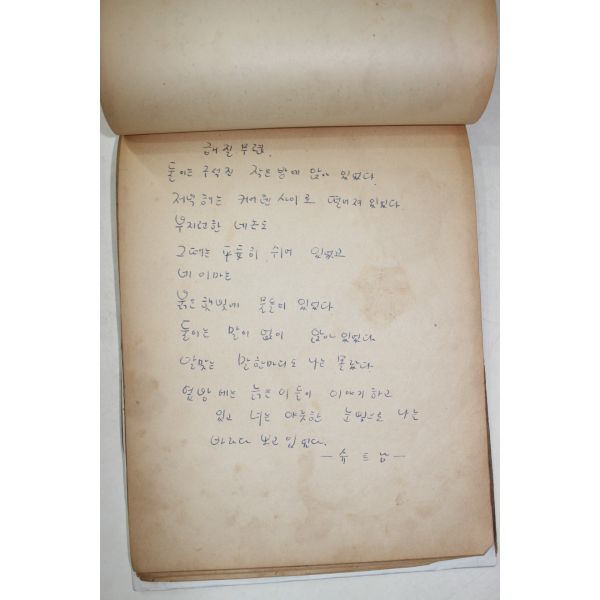 해질 무렵.
둘이는 구석진 작은 방에 앉아 있었다.
저녁 해는 커-텐 사이로 떨어져 있었다
부지런한 네 손도
그때는 포름히 쉬어 있었고
네 이마는
붉은 햇빛에 물들어 있었다
둘이는 말이 없이 앉아 있었다.
알맞는 말 한마디도 나는 몰랐다
옆방에는 늙은이들이 이야기하고
있고 너는 야릇한 눈빛으로 나는
바라다 보고 있었다.
— 슈 트 남 —